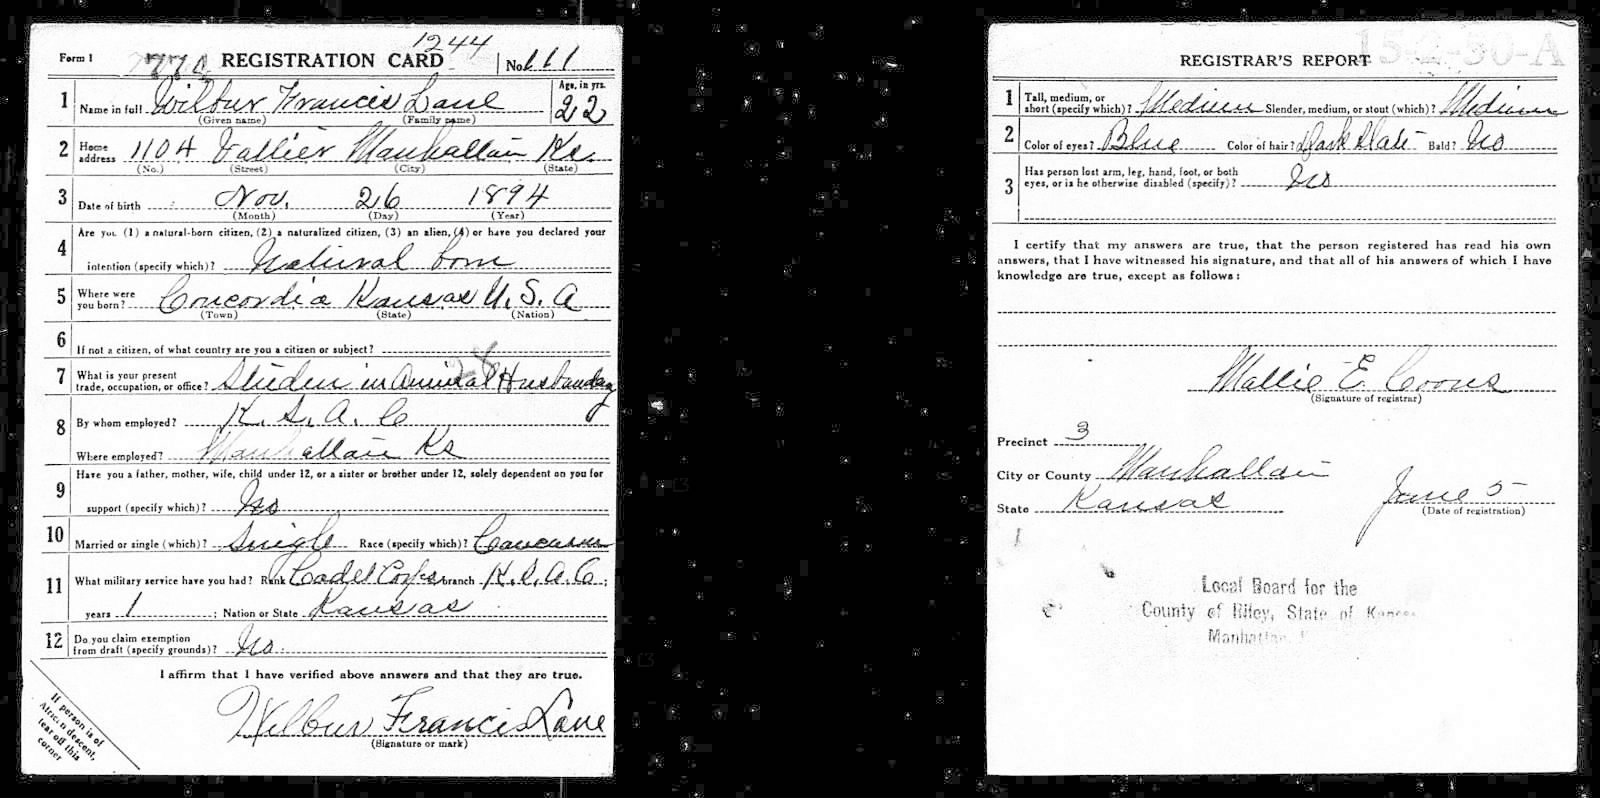 1244
Form 1 REGISTRATION CARD No. 111
1 Name in full Wilbur Francis Lane Age, in yrs. 22
(Given name) (Family name)
2 Home address 1104 Vattier Manhattan Ks.
(No.) (Street) (City) (State)
3 Date of birth Nov. 26 1894
(Month) (Day) (Year)
4 Are you (1) a natural-born citizen, (2) a naturalized citizen, (3) an alien, (4) or have you declared your
intention (specify which)? Natural born
5 Where were you born? Concordia Kansas U.S.A
(Town) (State) (Nation)
6 If not a citizen, of what country are you a citizen or subject?
28
7 What is your present trade, occupation, or office? Studen in Animal Husbandry
8 By whom employed? K.S.A.C
Where employed? Manhattan Ks
9 Have you a father, mother, wife, child under 12, or a sister or brother under 12, solely dependent on you for
support (specify which)? No
10 Married or single (which)? Single Race (specify which)? Caucasian
11 What military service have you had? Rank Cadet Corps branch K.S.A.C ;
years 1 ; Nation or State Kansas
12 Do you claim exemption from draft (specify grounds)? No.
I affirm that I have verified above answers and that they are true.
Wilbur Francis Lane
(Signature or mark)
If person is of
African descent,
tear off this
corner
15-2-30-A
REGISTRAR'S REPORT
1 Tall, medium, or short (specify which)? Medium Slender, medium, or stout (which)? Medium
2 Color of eyes? Blue Color of hair? Dark Bald? No
3 Has person lost arm, leg, hand, foot, or both eyes, or is he otherwise disabled (specify)? No
I certify that my answers are true, that the person registered has read his own
answers, that I have witnessed his signature, and that all of his answers of which I have
knowledge are true, except as follows:
Mallie E. Coons
(Signature of registrar)
Precinct 3
City or County Manhattan
State Kansas June 5
(Date of registration)
Local Board for the
County of Riley, State of Kansas
Manhattan,